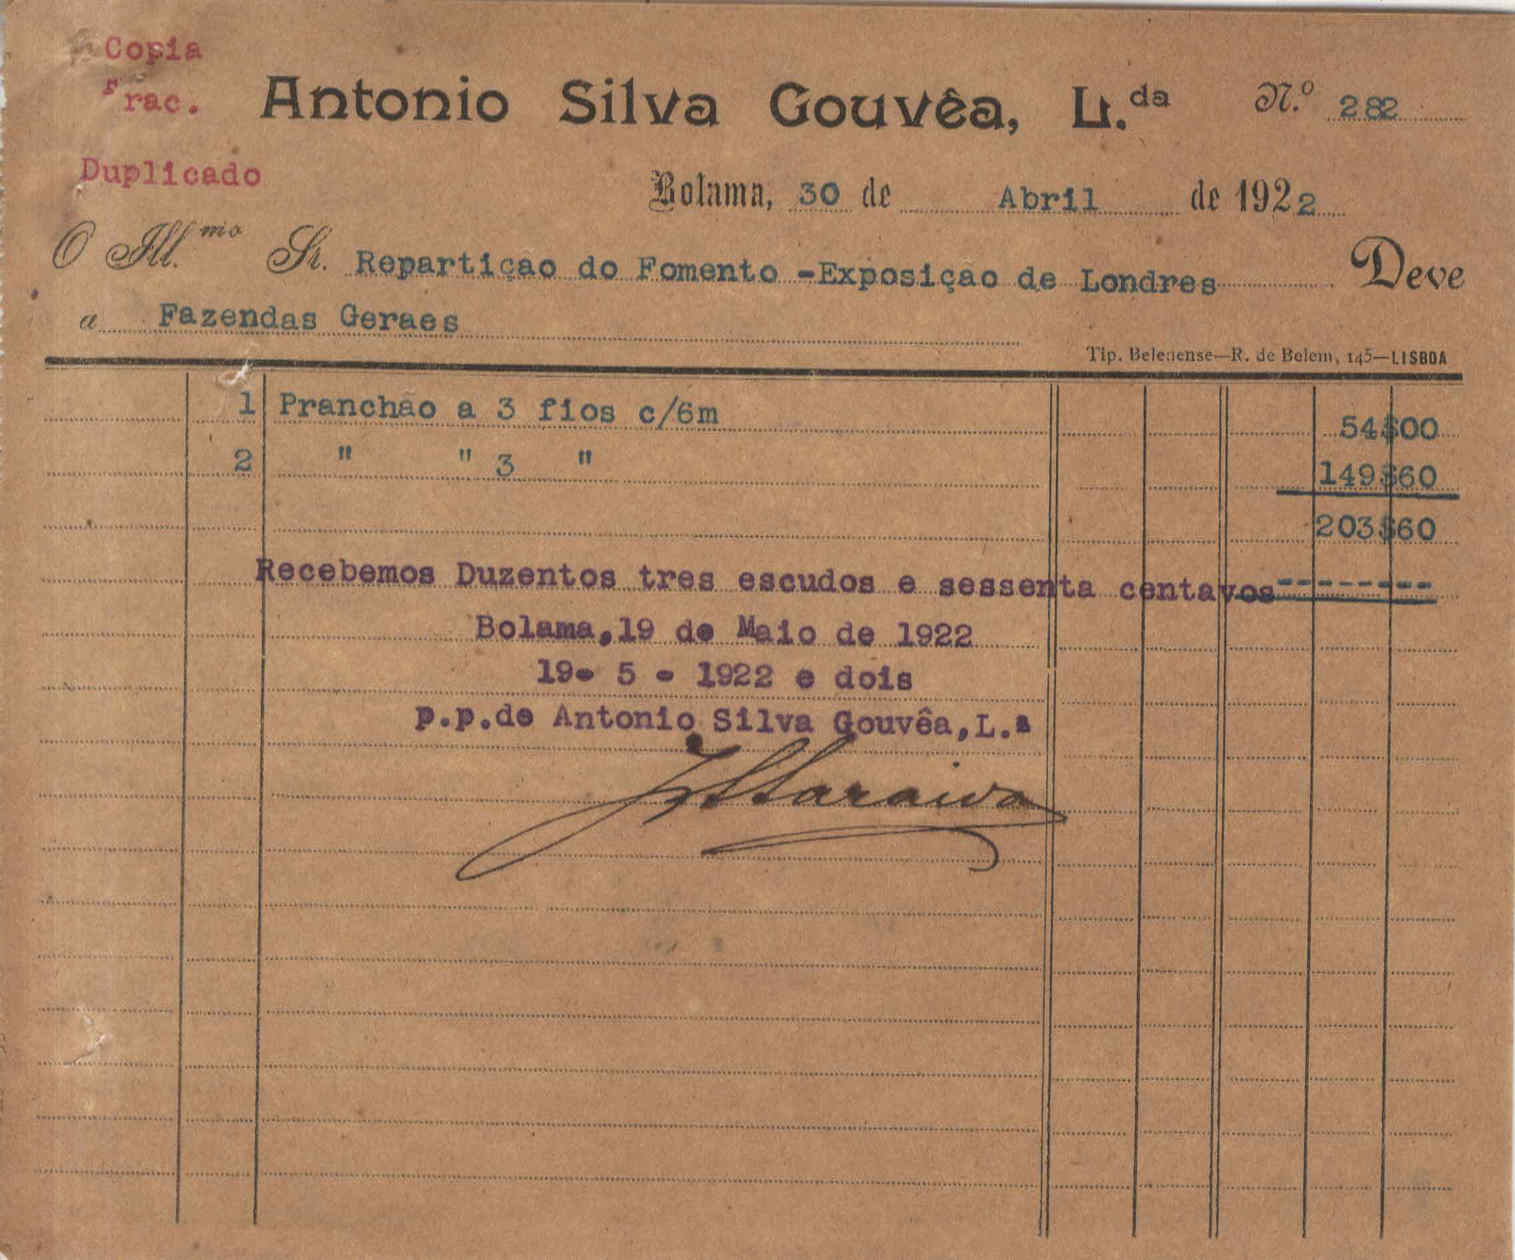 Copia
frac.
Antonio Silva Gouvêa, L.da N.º 282
Duplicado
Bolama, 30 de Abril de 1922
O Ill.mo Sr. Repartiçao do Fomento -Exposiçao de Londres Deve
a Fazendas Geraes
Tip. Belenense—R. de Belem, 145—LISBOA
1 Pranchão a 3 fios c/6m 54$00
2 " " 3 " 149$60
203$60
Recebemos Duzentos tres escudos e sessenta centavos---------
Bolama,19 de Maio de 1922
19- 5 - 1922 e dois
p.p.de Antonio Silva Gouvêa,L.a
Saraiva